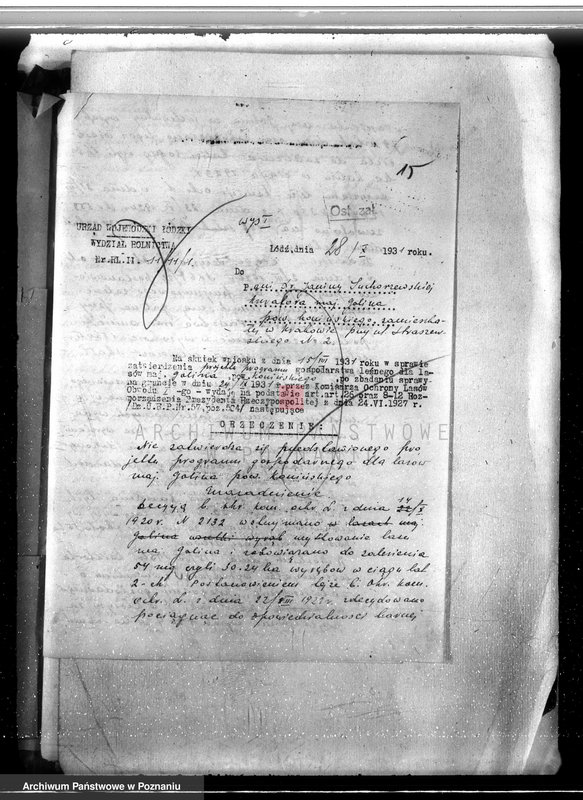 15
Ost. zat.
wys I
URZĄD WOJEWÓDZKI ŁÓDZKI
WYDZIAŁ ROLNICTWA
Nr. RL. II. 11/11/1.
Łódź, dnia 28/X 1931 roku.
Do
P. Janiny Suchorzewskiej
kuratora maj. Golina
pow. konińskiego zamieszka-
łej w Krakowie przy ul. Straszew-
skiego № 2.
Na skutek wniosku z dnia 15/VII 1931 roku w sprawie
zatwierdzenia projektu programu gospodarstwa leśnego dla la-
sów maj. Golina pow. konińskiego, po zbadaniu sprawy
na gruncie w dniu 24/IX 1931 r. przez Komisarza Ochrony Lasów
Obwodu -go - wydaję na podstawie art. art. 26 oraz 8-12 Roz-
porządzenia Prezydenta Rzeczypospolitej z dnia 24.VI.1927 r.
/Dz.U.R.P. Nr. 57, poz. 504/ następujące
ORZECZENIE:
ARCHIWUM PAŃSTWOWE
Nie zatwierdza się przedstawionego pro
jektu programu gospodarczego dla lasów
maj. Golina pow. konińskiego
Uzasadnienie
Decyzją b. okr. kom. ochr. L. z dnia 14/X
1920 r. № 2132 wstrzymano w lasach maj.
Golina wszelki wyrąb użytkowanie lasu
maj Golina i zobowiązano do zalesienia
54 mg czyli 30.24 ha wyrębów w ciągu lat
2-ch. Postanowieniem tejże b. Okr. kom.
ochr. L. z dnia 22/VIII 1922 r. zdecydowano
pociągnąć do odpowiedzialności karnej
Archiwum Państwowe w Poznaniu